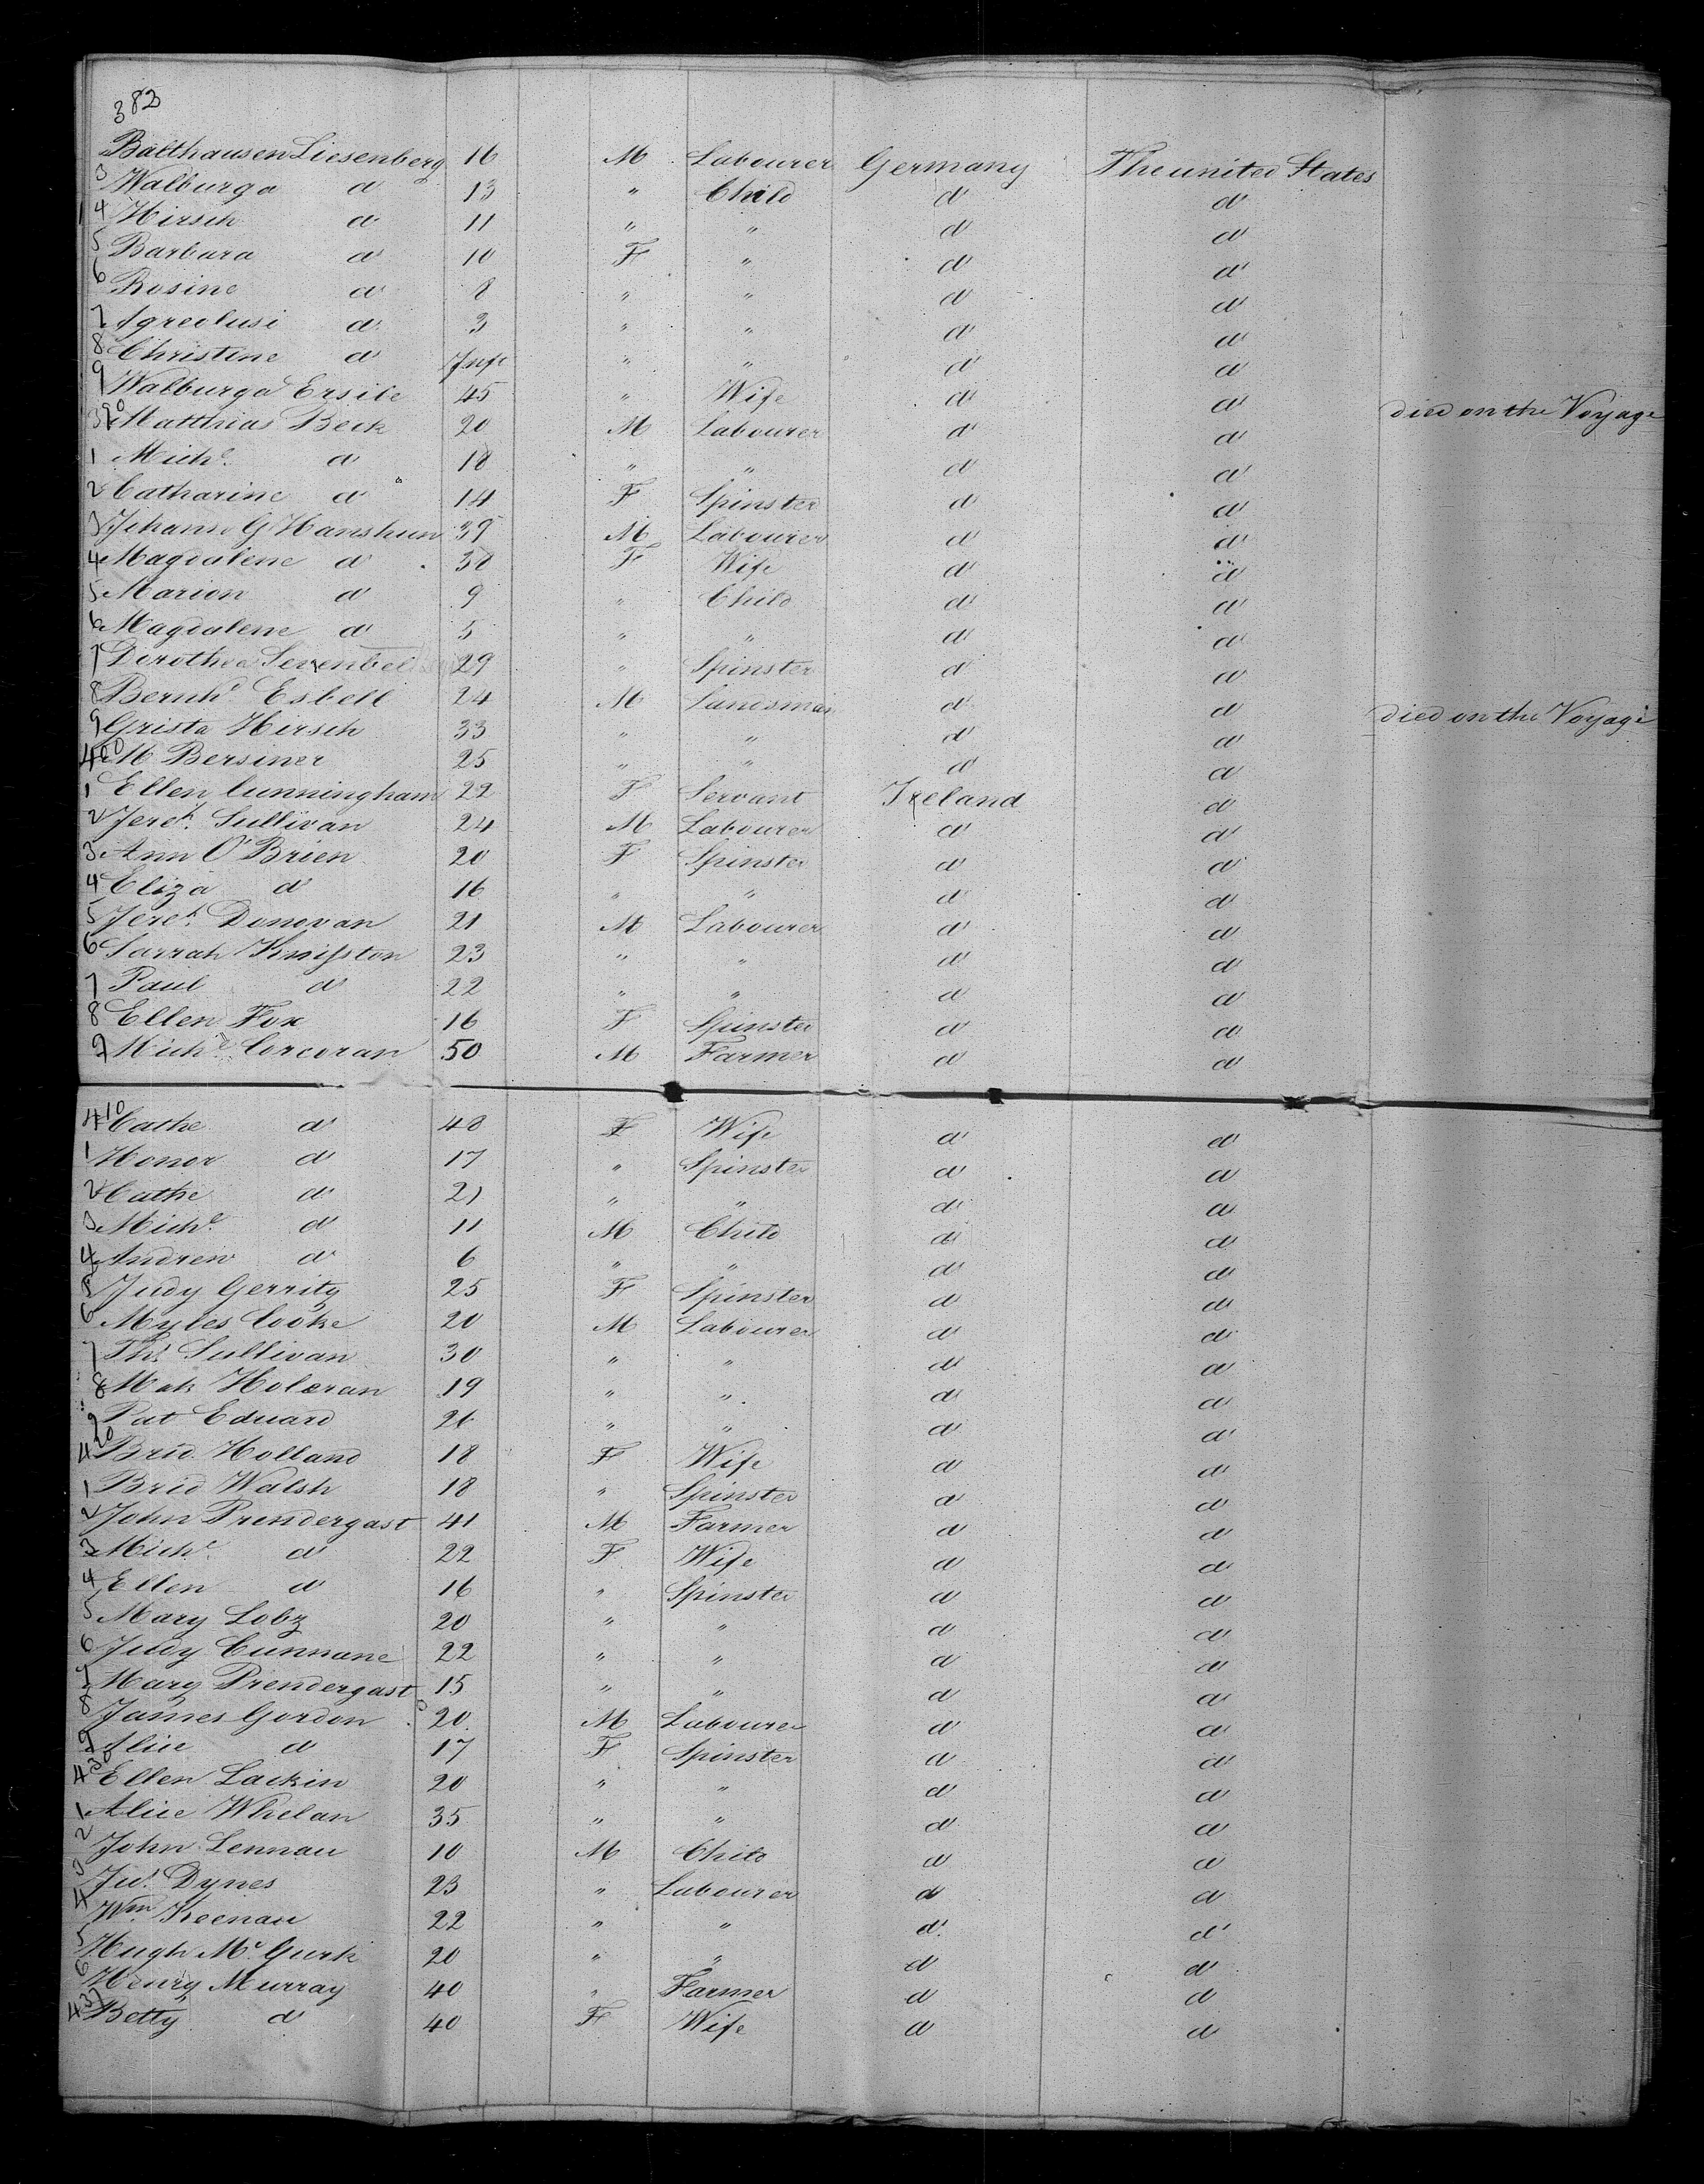 382
Balthausen Liesenberg 16 M Labourer Germany The united States
3 Walburga d 13 " Child d d
4 Hirsch d 11 " " d d
5 Barbara d 10 F " d d
6 Rosine d 8 " " d d
7 d 3 " " d d
8 Christine d Inft " " d d
9 Walburga Ersile 45 " Wife d d died on the Voyage
390 Matthias Beck 20 M Labourer d d
1 Michl. d 18 " " d d
2 Catharine d 14 F Spinster d d
3 Johann G Hanshun 39 M Labourer d d
4 Magdalene d 38 F Wife d d
5 Marion d 9 " Child d d
6 Magdalene d 5 " " d d
7 Dorothea 29 " Spinster d d
8 Bernhd Esbell 24 M Landsman d d died on the Voyage
9 Grista Hirsch 33 " " d d
400 M Bersiner 25 " " d d
1 Ellen Cunningham 22 F Servant Ireland d
2 Jereh. Sullivan 24 M Labourer d d
3 Ann O'Brien 20 F Spinster d d
4 Eliza d 16 " " d d
5 Jereh. Donovan 21 M Labourer d d
6 Sarrah Knifston 23 " " d d
7 Paul d 22 " " d d
8 Ellen Fox 16 F Spinster d d
9 Michl Corcoran 50 M Farmer d d
410 Cathe d 48 F Wife d d
1 Honor d 17 " Spinster d d
2 Cathe d 21 " " d d
3 Michl. d 11 M Child d d
4 Andrew d 6 " " d d
5 Judy Gerrity 25 F Spinster d d
6 Myles Cooke 20 M Labourer d d
7 Ths Sullivan 30 " " d d
8 Mak Holeran 19 " " d d
9 Pat Eduard 26 " " d d
420 Brid. Holland 18 F Wife d d
1 Brid Walsh 18 " Spinster d d
2 John Prendergast 41 M Farmer d d
3 Michl. d 22 F Wife d d
4 Ellen d 16 " Spinster d d
5 Mary Lobz 20 " " d d
6 Judy Cunnane 22 " " d d
7 Mary Prendergast 15 " " d d
8 James Gordon 20 M Labourer d d
9 Alice d 17 F Spinster d d
430 Ellen Lackin 20 " " d d
1 Alice Whelan 35 " " d d
2 John Lennau 10 M Child d d
3 Jas. Dynes 23 " Labourer d d
4 Wm. Keenau 22 " " d d
5 Hugh Mc Gurk 20 " " d d
6 Henry Murray 40 " Farmer d d
437 Betty d 40 F Wife d d